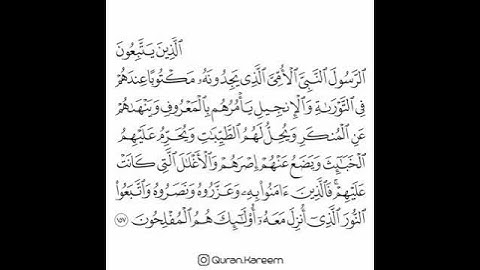 ٱلَّذِينَ يَتَّبِعُونَ
ٱلرَّسُولَ ٱلنَّبِيَّ ٱلۡأُمِّيَّ ٱلَّذِي يَجِدُونَهُۥ مَكۡتُوبًا عِندَهُمۡ
فِي ٱلتَّوۡرَىٰةِ وَٱلۡإِنجِيلِ يَأۡمُرُهُم بِٱلۡمَعۡرُوفِ وَيَنۡهَىٰهُمۡ
عَنِ ٱلۡمُنكَرِ وَيُحِلُّ لَهُمُ ٱلطَّيِّبَٰتِ وَيُحَرِّمُ عَلَيۡهِمُ
ٱلۡخَبَٰٓئِثَ وَيَضَعُ عَنۡهُمۡ إِصۡرَهُمۡ وَٱلۡأَغۡلَٰلَ ٱلَّتِي كَانَتۡ
عَلَيۡهِمۡۚ فَٱلَّذِينَ ءَامَنُواْ بِهِۦ وَعَزَّرُوهُ وَنَصَرُوهُ وَٱتَّبَعُواْ
ٱلنُّورَ ٱلَّذِيٓ أُنزِلَ مَعَهُۥٓ أُوْلَٰٓئِكَ هُمُ ٱلۡمُفۡلِحُونَ ١٥٧
Quran.Kareem